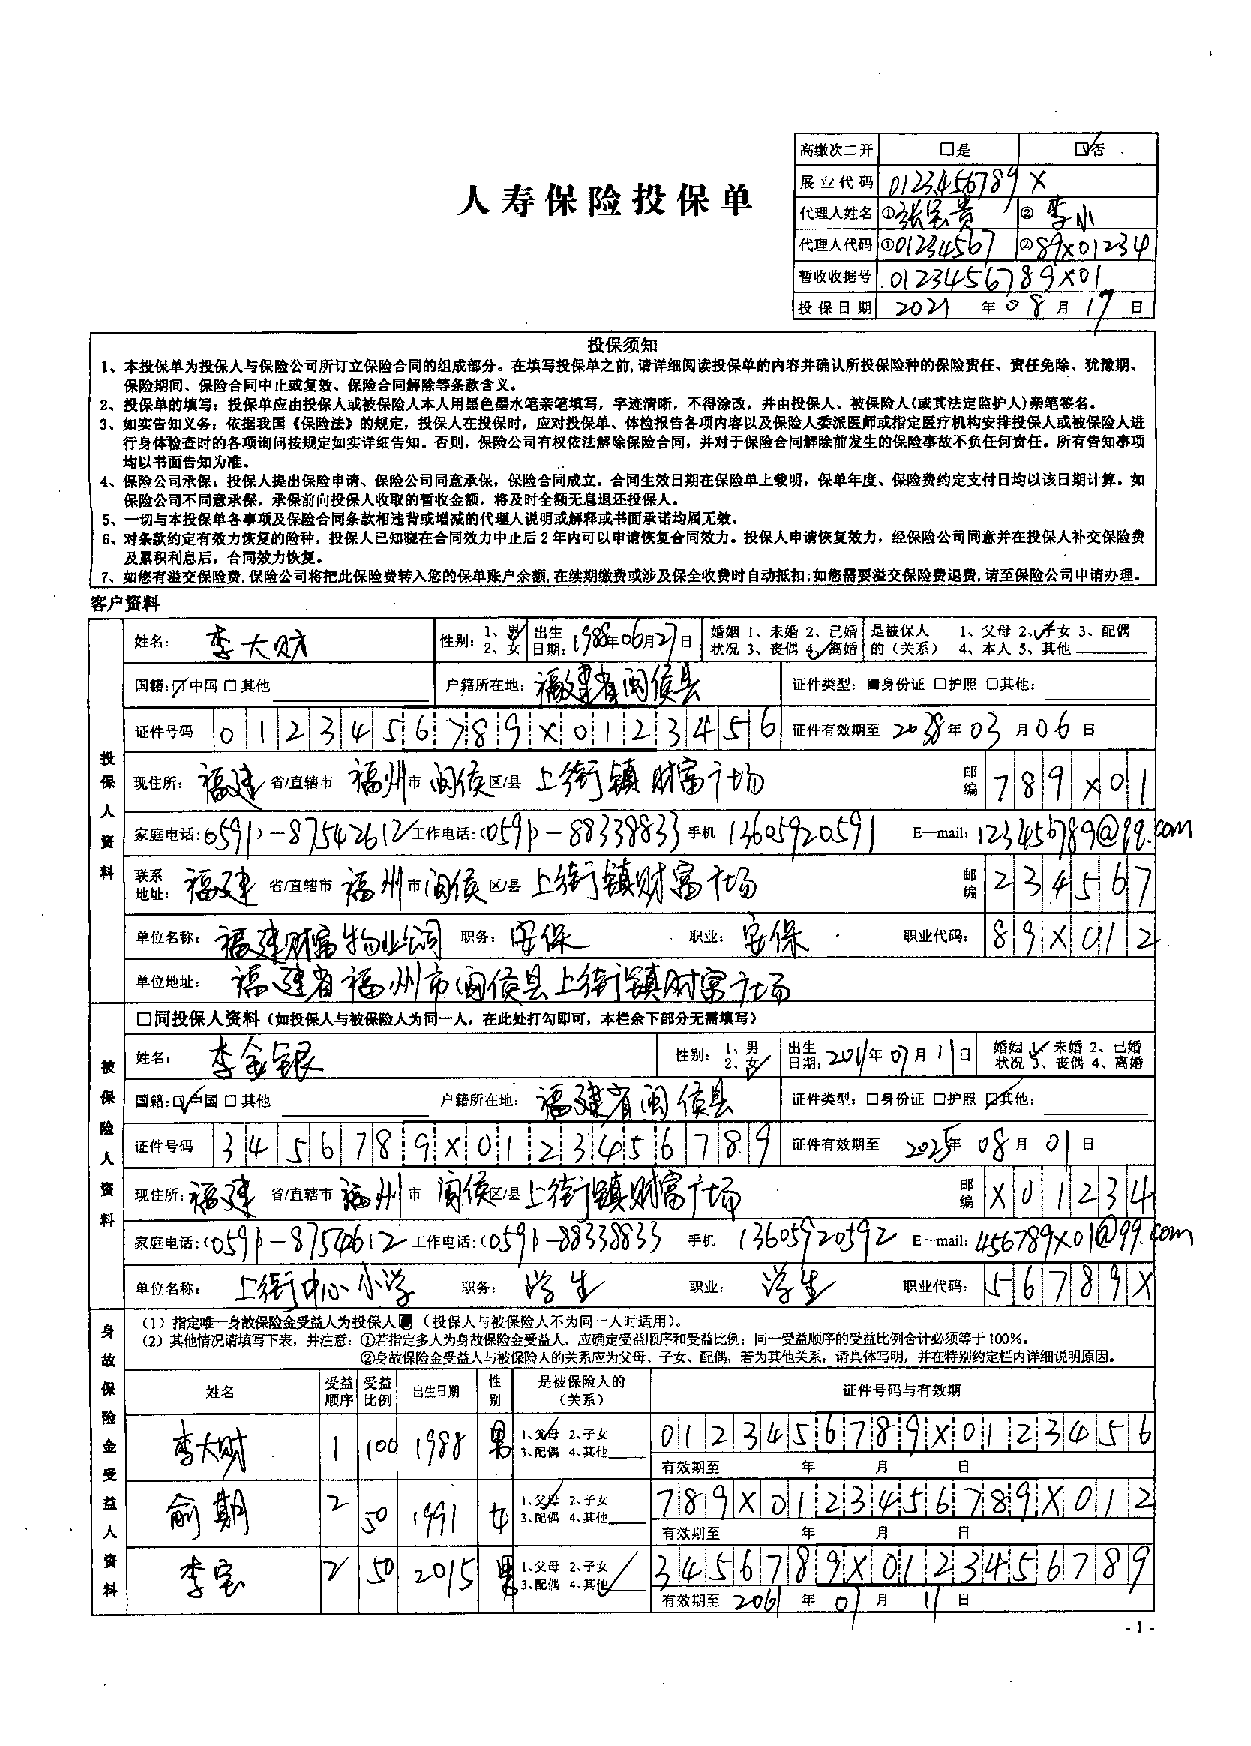 高缴次二开 □是 ☑否
人寿保险投保单
展业代码 0123456789X
代理人姓名 ①张宝贵 ②李小
代理人代码 ①01234567 ②89X01234
暂收收据号 0123456789X01
投保日期 2021年08月17日
投保须知
1、本投保单为投保人与保险公司所订立保险合同的组成部分。在填写投保单之前,请详细阅读投保单的内容并确认所投保险种的保险责任、责任免除、犹豫期、
保险期间、保险合同中止或复效、保险合同解除等条款含义。
2、投保单的填写：投保单应由投保人或被保险人本人用黑色墨水笔亲笔填写，字迹清晰，不得涂改，并由投保人、被保险人(或其法定监护人)亲笔签名。
3、如实告知义务：依据我国《保险法》的规定，投保人在投保时，应对投保单、体检报告各项内容以及保险人委派医师或指定医疗机构安排投保人或被保险人进
行身体检查时的各项询问按规定如实详细告知。否则，保险公司有权依法解除保险合同，并对于保险合同解除前发生的保险事故不负任何责任。所有告知事项
均以书面告知为准。
4、保险公司承保：投保人提出保险申请、保险公司同意承保，保险合同成立。合同生效日期在保险单上载明，保单年度、保险费约定支付日均以该日期计算。如
保险公司不同意承保，承保前向投保人收取的暂收金额，将及时全额无息退还投保人。
5、一切与本投保单各事项及保险合同条款相违背或增减的代理人说明或解释或书面承诺均属无效。
6、对条款约定有效力恢复的险种，投保人已知晓在合同效力中止后2年内可以申请恢复合同效力。投保人申请恢复效力，经保险公司同意并在投保人补交保险费
及累积利息后，合同效力恢复。
7、如您有溢交保险费,保险公司将把此保险费转入您的保单账户余额,在续期缴费或涉及保全收费时自动抵扣;如您需要溢交保险费退费,请至保险公司申请办理。
客户资料
投保人资料
姓名：李大财 性别：1、男 2、女 出生日期：1988年06月27日 婚姻状况 1、未婚 2、已婚 3、丧偶 4、离婚 是被保人的（关系） 1、父母 2、子女 3、配偶 4、本人 5、其他
国籍：☑中国 □其他 户籍所在地：福建省闽侯县 证件类型：■身份证 □护照 □其他：
证件号码 0123456789X0123456 证件有效期至 2038年03月06日
现住所：福建 省/直辖市 福州 市 闽侯 区/县 上街镇财富广场 邮编 789X01
家庭电话：(0591)-87542612 工作电话：(0591)-88338833 手机 13605920591 E-mail：123456789@qq.com
联系地址：福建 省/直辖市 福州 市 闽侯 区/县 上街镇财富广场 邮编 234567
单位名称：福建财富物业公司 职务：安保 职业：安保 职业代码：89X012
单位地址：福建省福州市闽侯县上街镇财富广场
被保险人资料
□同投保人资料（如投保人与被保险人为同一人，在此处打勾即可，本栏余下部分无需填写）
姓名：李金银 性别：1、男 2、女 出生日期：2011年07月11日 婚姻状况 1、未婚 2、已婚 3、丧偶 4、离婚
国籍：☑中国 □其他 户籍所在地：福建省闽侯县 证件类型：□身份证 □护照 ☑其他：
证件号码 3456789X0123456789 证件有效期至 2025年08月01日
现住所：福建 省/直辖市 福州 市 闽侯 区/县 上街镇财富广场 邮编 X01234
家庭电话：(0591)-87542612 工作电话：(0591)-88338833 手机 13605920592 E-mail：456789X01@qq.com
单位名称：上街中心小学 职务：学生 职业：学生 职业代码：56789X
身故保险金受益人资料
（1）指定唯一身故保险金受益人为投保人■（投保人与被保险人不为同一人时适用）。
（2）其他情况请填写下表，并注意：①若指定多人为身故保险金受益人，应确定受益顺序和受益比例；同一受益顺序的受益比例合计必须等于100%。
②身故保险金受益人与被保险人的关系应为父母、子女、配偶，若为其他关系，请具体写明，并在特别约定栏内详细说明原因。
姓名 受益顺序 受益比例 出生日期 性别 是被保险人的（关系） 证件号码与有效期
李大财 1 100 1988 男 1、父母 2、子女 3、配偶 4、其他 0123456789X0123456
有效期至 年 月 日
俞期 2 50 1991 女 1、父母 2、子女 3、配偶 4、其他 789X0123456789X012
有效期至 年 月 日
李宝 2 50 2015 男 1、父母 2、子女 3、配偶 4、其他 3456789X0123456789
有效期至 2061年07月11日
- 1 -